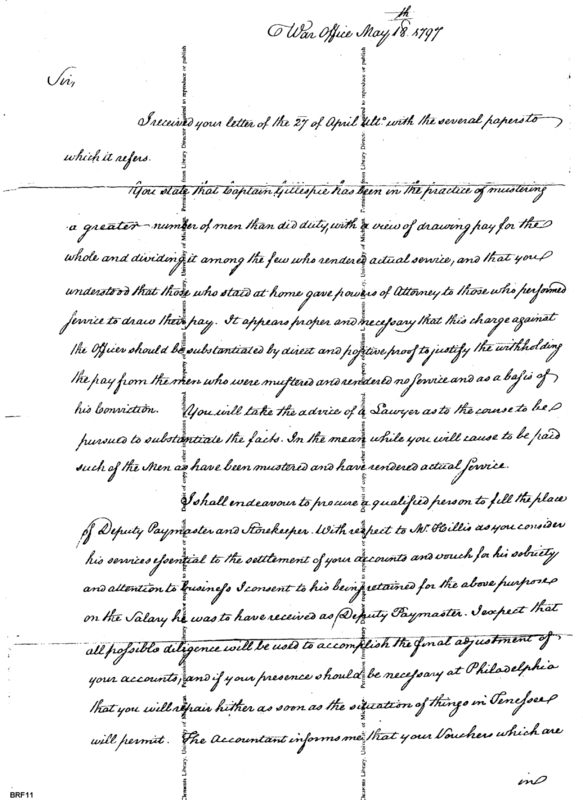 War Office May 18th 1797
Sir,
I received your letter of the 27 of April Ulto. with the several papers to
which it refers.
You state that Captain Gillespie has been in the practice of mustering
a greater number of men than did duty, with a view of drawing pay for the
whole and dividing it among the few who rendered actual service, and that you
understood that those who staid at home gave powers of Attorney to those who performed
service to draw their pay. It appears proper and necessary that this charge against
the Officer should be substantiated by direct and positive proof to justify the withholding
the pay from the men who were mustered and rendered no service and as a basis of
his Conviction. You will take the advice of a Lawyer as to the course to be
pursued to substantiate the facts. In the mean while you will cause to be paid
such of the Men as have been mustered and have rendered actual service.
I shall endeavour to procure a qualified person to fill the place
of Deputy Paymaster and Storekeeper. With respect to Mr. Hillis as you consider
his services essential to the settlement of your accounts and vouch for his sobriety
and attention to business I consent to his being retained for the above purpose
on the Salary he was to have received as Deputy Paymaster. I expect that
all possible diligence will be used to accomplish the final adjustment of
your accounts, and if your presence should be necessary at Philadelphia
that you will repair hither as soon as the situation of things in Tenessee
will permit. The Accountant informs me that your Vouchers which are
in
BRF11